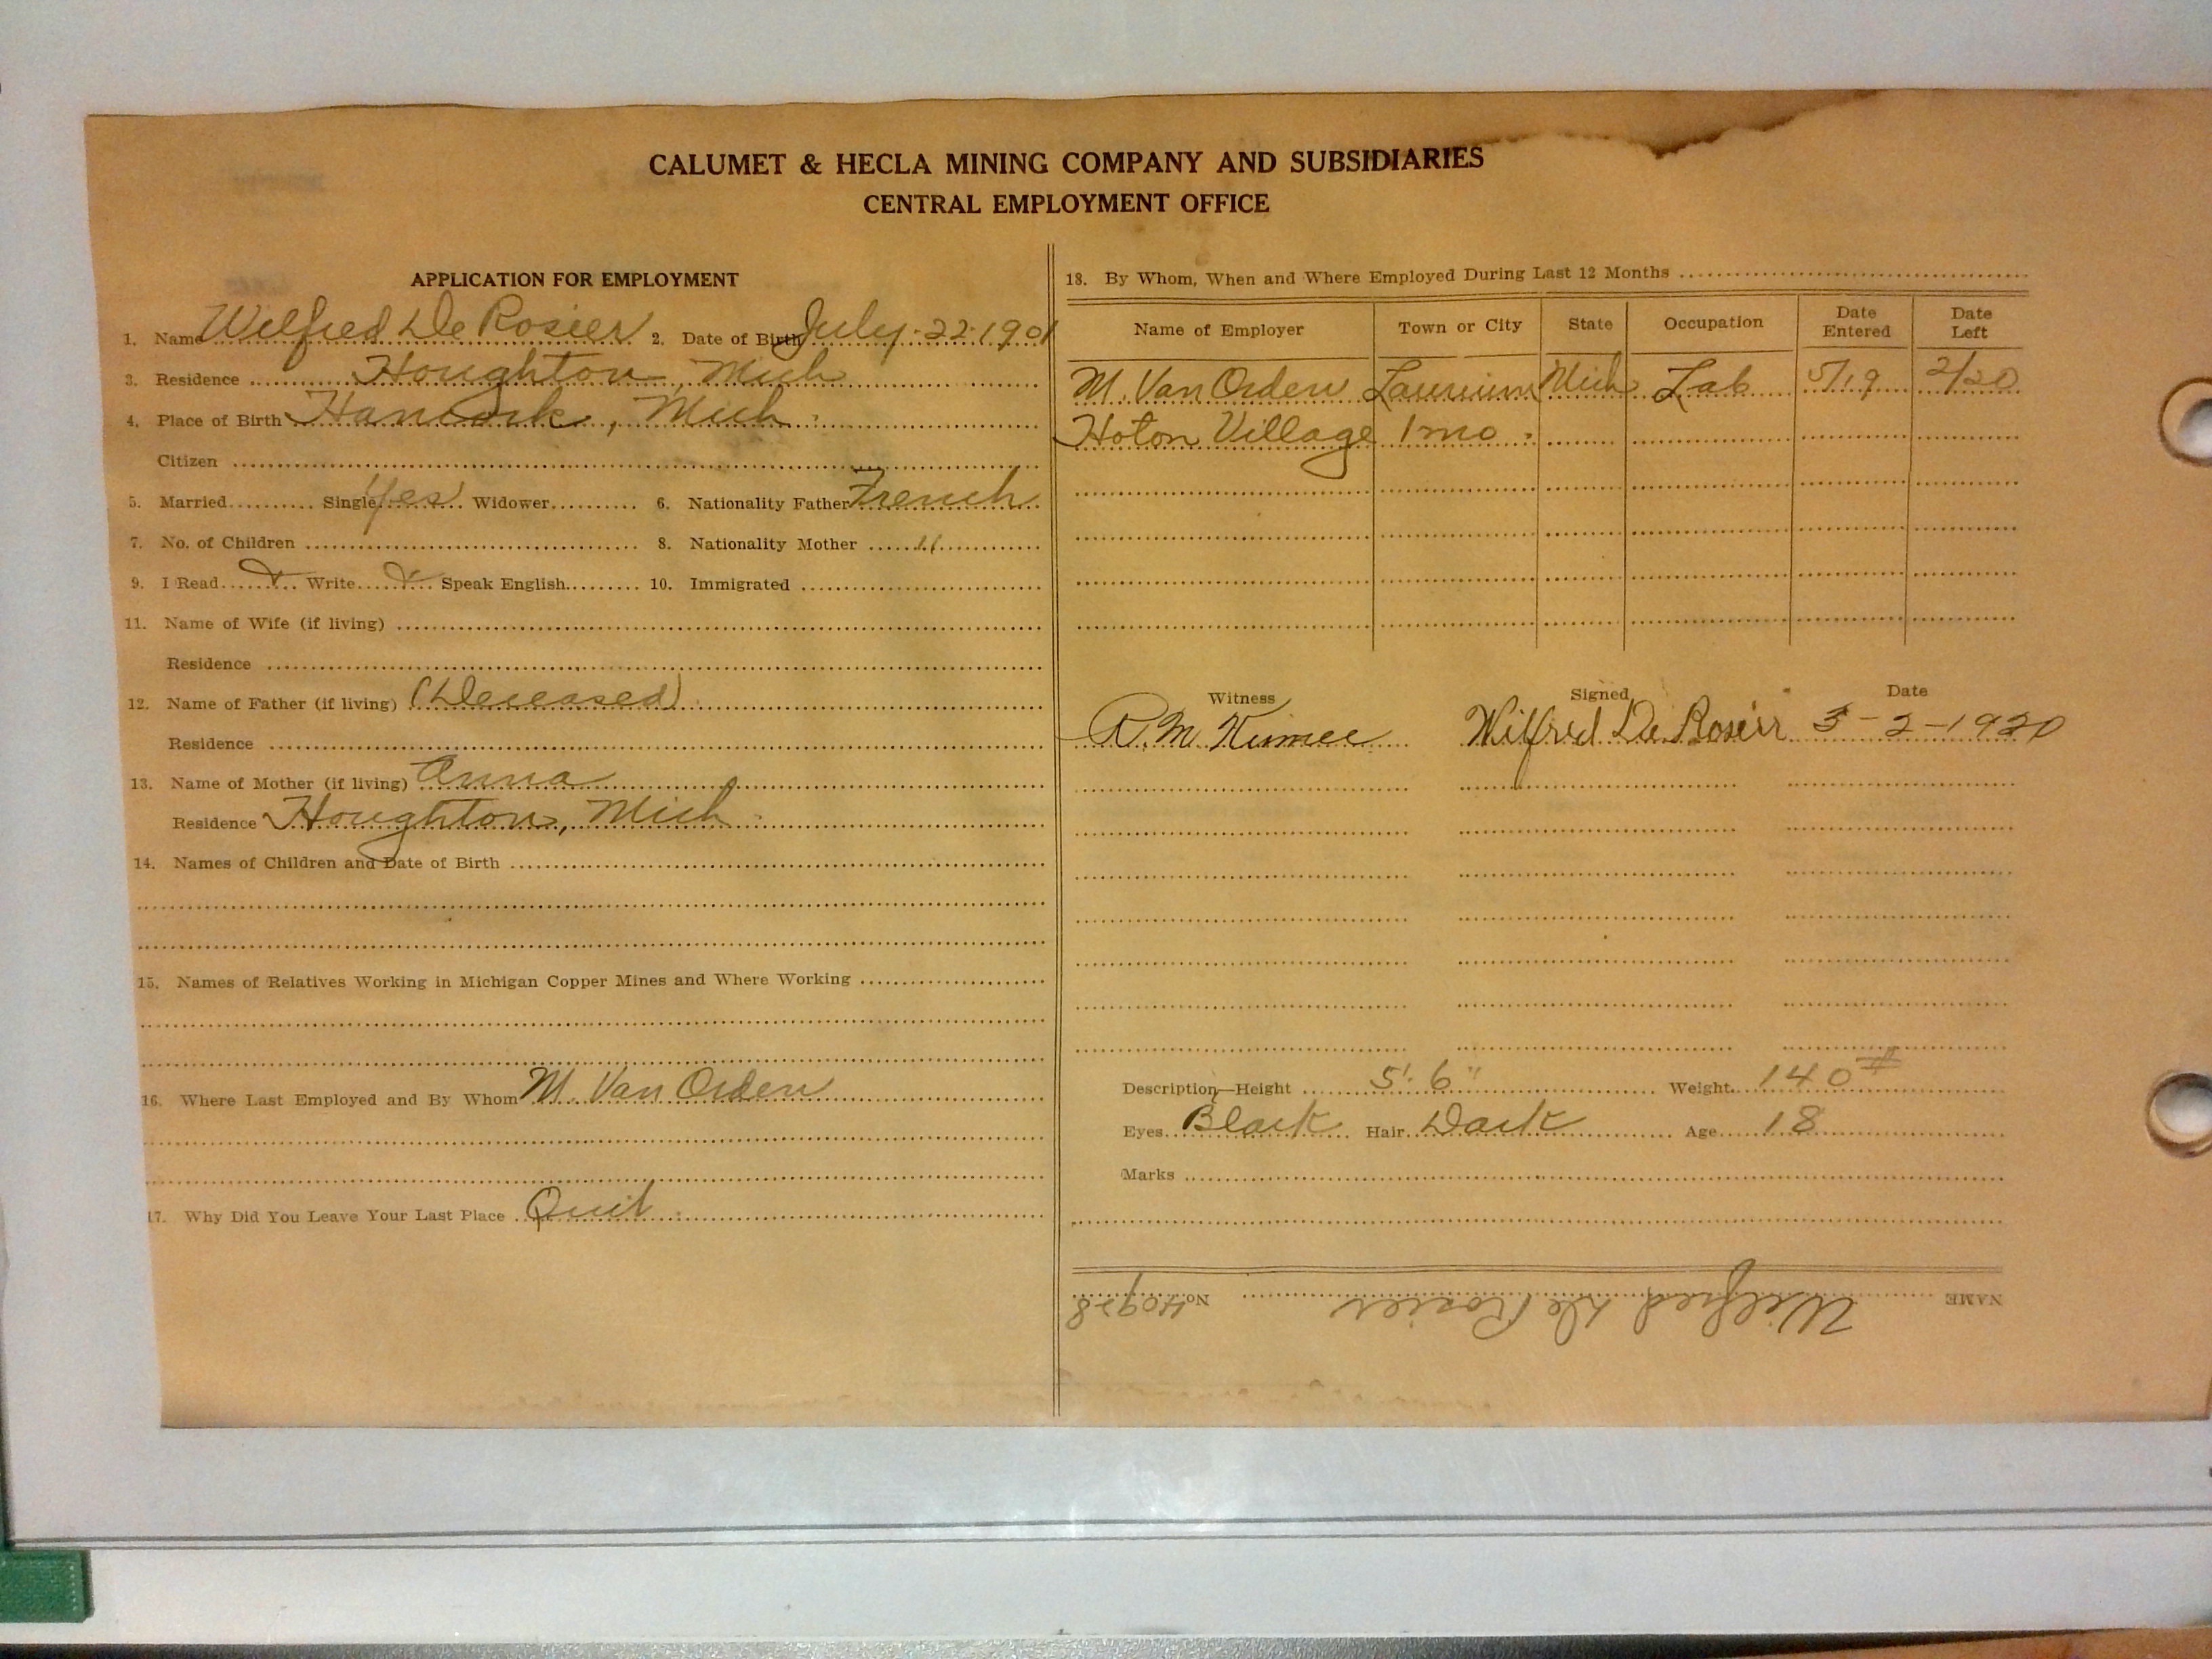 CALUMET & HECLA MINING COMPANY AND SUBSIDIARIES
CENTRAL EMPLOYMENT OFFICE
APPLICATION FOR EMPLOYMENT
1. Name Wilfred De Rosier 2. Date of Birth July 22 1901
3. Residence Houghton, Mich
4. Place of Birth Hancock, Mich.
Citizen
5. Married Single Yes Widower 6. Nationality Father French
7. No. of Children 8. Nationality Mother "
9. I Read ✓ Write ✓ Speak English 10. Immigrated
11. Name of Wife (if living)
Residence
12. Name of Father (if living) (Deceased)
Residence
13. Name of Mother (if living) Anna
Residence Houghton, Mich
14. Names of Children and Date of Birth
15. Names of Relatives Working in Michigan Copper Mines and Where Working
16. Where Last Employed and By Whom M. Van Orden
17. Why Did You Leave Your Last Place Quit
18. By Whom, When and Where Employed During Last 12 Months
Name of Employer Town or City State Occupation Date Entered Date Left
M. Van Orden Laurium Mich Lab 5/19 2/20
Hoton Village 1 mo.
Witness Signed Date
R. M. Wilfred De Rosier 3-2-1920
Description—Height 5' 6" Weight 140#
Eyes Black Hair Dark Age 18
Marks
NAME Wilfred De Rosier No. 40928